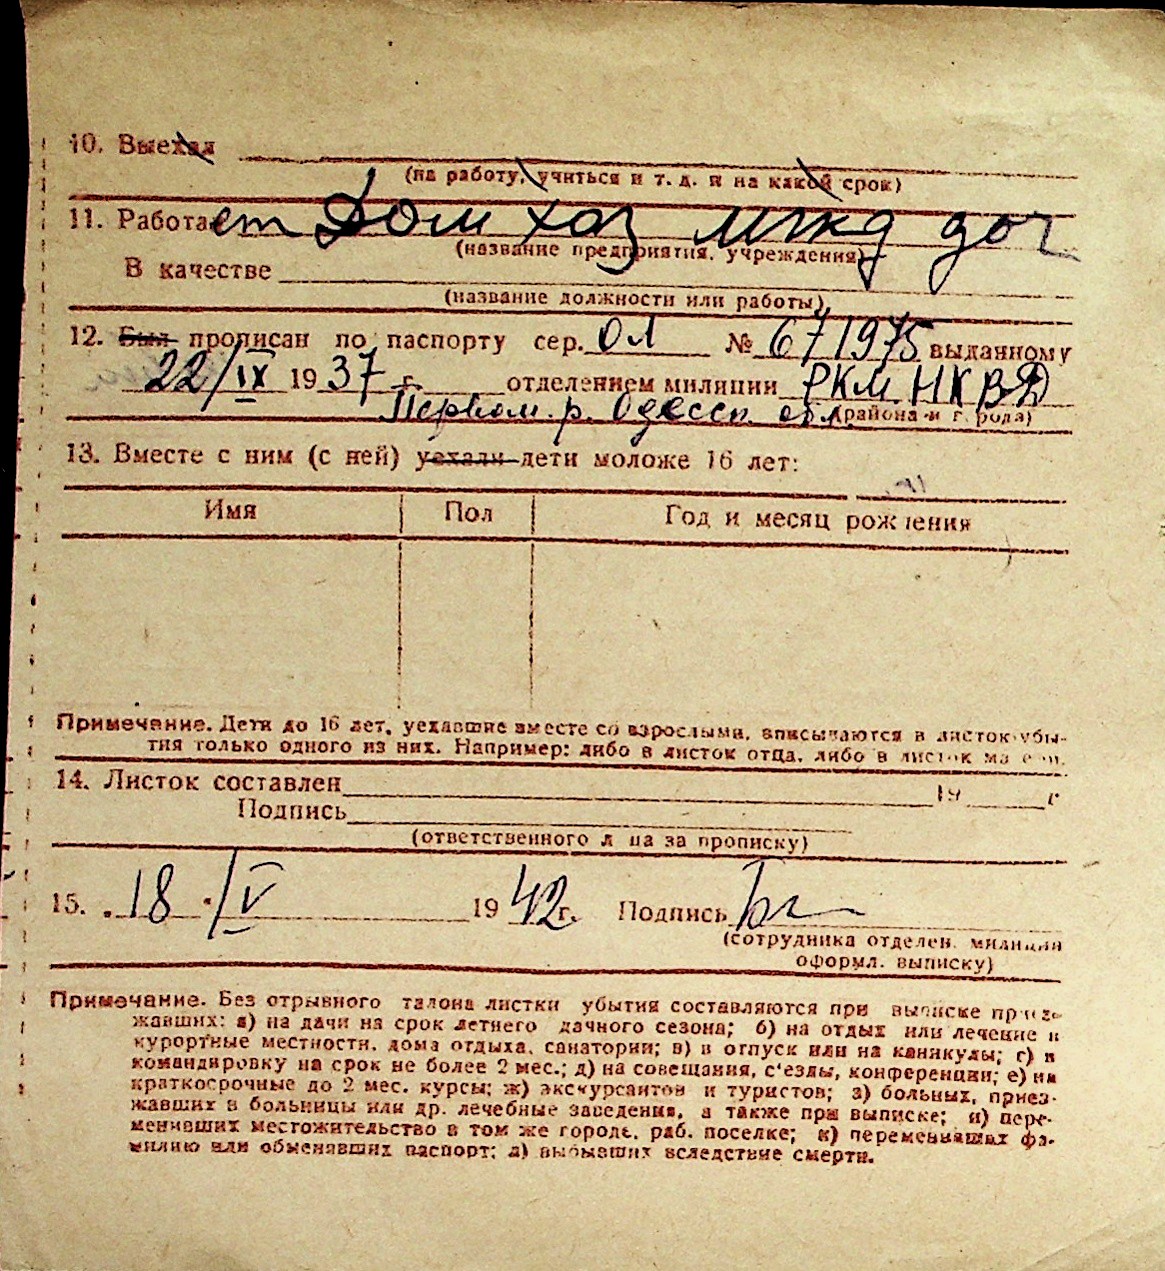 10. Выехал
(на работу, учиться и т. д. и на какой срок)
11. Работает Дом хоз мжд доч
(название предприятия, учреждения)
В качестве
(название должности или работы)
12. Был прописан по паспорту сер. ОЛ № 671975 выданному
22/IX 1937 г. отделением милиции РКМ НКВД
Первом. р. Одесск. обл (района и города)
13. Вместе с ним (с ней) уехали дети моложе 16 лет:
Имя Пол Год и месяц рождения
Примечание. Дети до 16 лет, уехавшие вместе со взрослыми, вписываются в листок убы-
тия только одного из них. Например: либо в листок отца, либо в листок матери.
14. Листок составлен 19 г
Подпись
(ответственного лица за прописку)
15. 18/V 1942 г. Подпись
(сотрудника отделен. милиции
оформл. выписку)
Примечание. Без отрывного талона листки убытия составляются при выписке приез-
жавших: а) на дачи на срок летнего дачного сезона; б) на отдых или лечение в
курортные местности, дома отдыха, санатории; в) в отпуск или на каникулы; г) в
командировку на срок не более 2 мес.; д) на совещания, с'езды, конференции; е) на
краткосрочные до 2 мес. курсы; ж) экскурсантов и туристов; з) больных, приез-
жавших в больницы или др. лечебные заведения, а также при выписке; и) пере-
менивших местожительство в том же городе, раб. поселке; к) переменивших фа-
милию или обменявших паспорт; л) выбывших вследствие смерти.